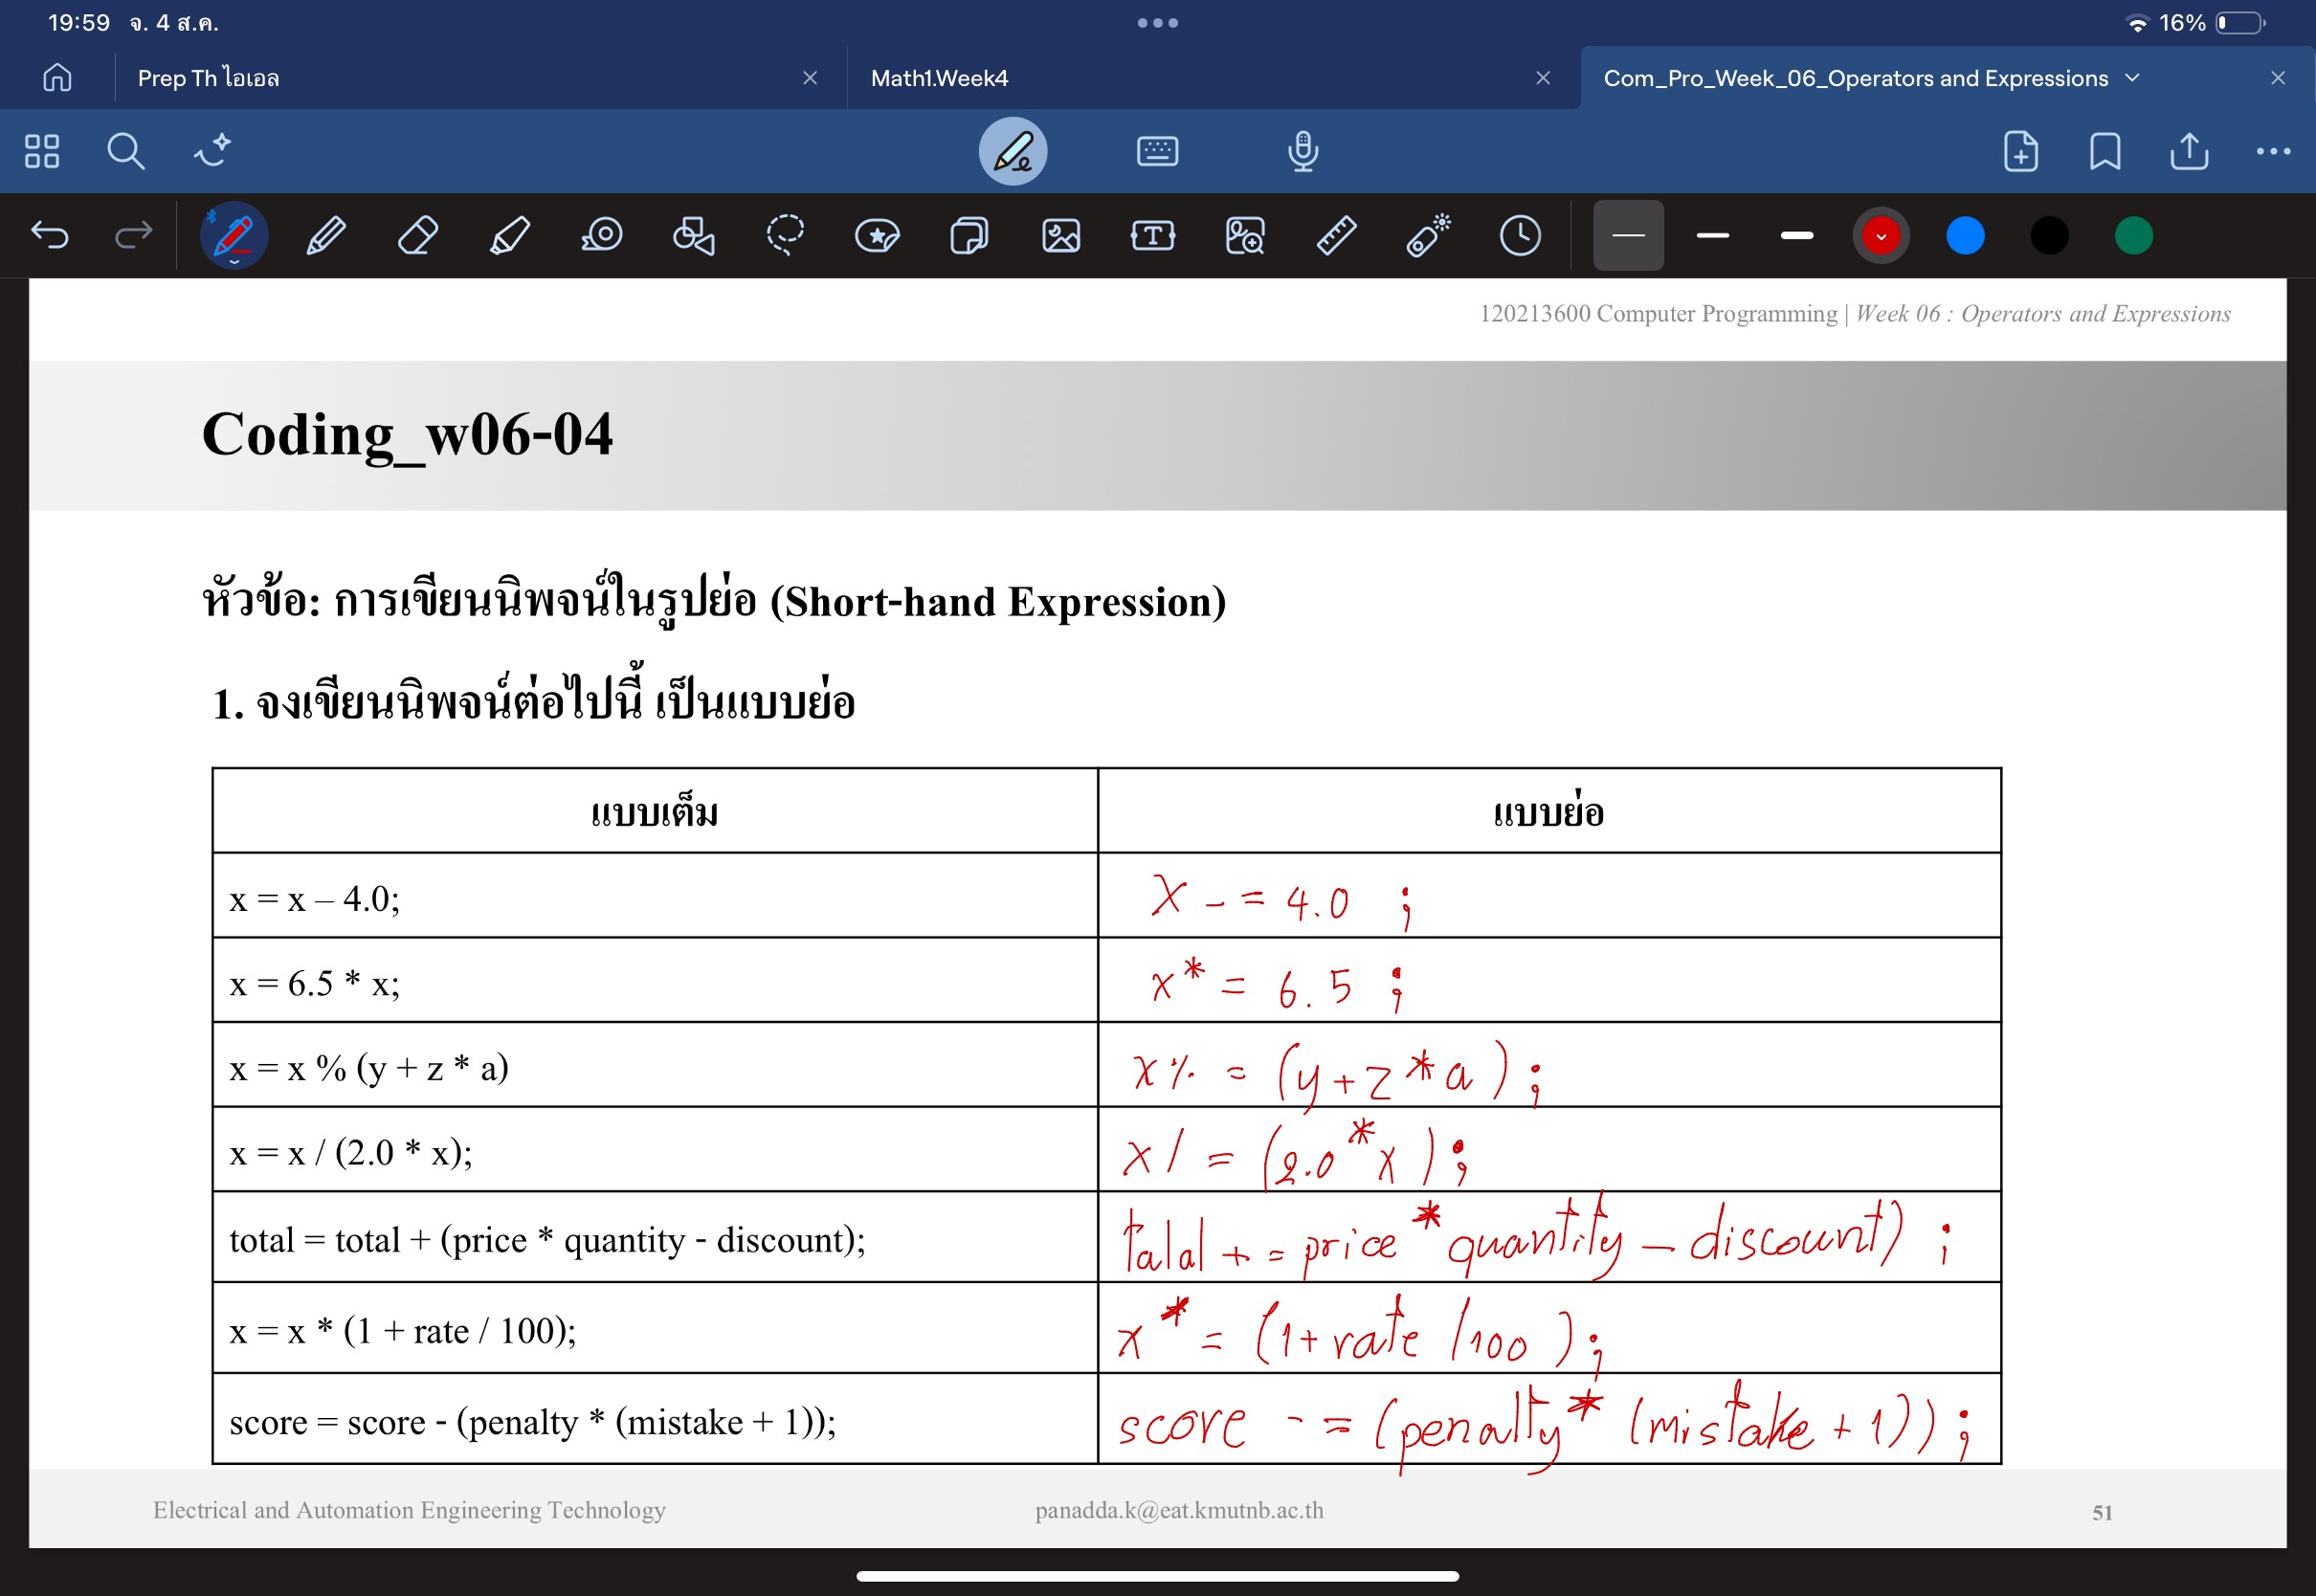 19:59 จ. 4 ส.ค.
16%
Prep Th ไอเอล
Math1.Week4
Com_Pro_Week_06_Operators and Expressions
120213600 Computer Programming | Week 06 : Operators and Expressions
Coding_w06-04
หัวข้อ: การเขียนนิพจน์ในรูปย่อ (Short-hand Expression)
1. จงเขียนนิพจน์ต่อไปนี้ เป็นแบบย่อ
แบบเต็ม แบบย่อ
x = x – 4.0; X - = 4.0 ;
x = 6.5 * x; x* = 6.5 ;
x = x % (y + z * a) x% = (y+z*a);
x = x / (2.0 * x); x/ = (2.0*x);
total = total + (price * quantity - discount); talal + = price*quantity - discount) ;
x = x * (1 + rate / 100); x* = (1+rate /100 );
score = score - (penalty * (mistake + 1)); score - = (penalty* (mistake + 1));
Electrical and Automation Engineering Technology panadda.k@eat.kmutnb.ac.th 51